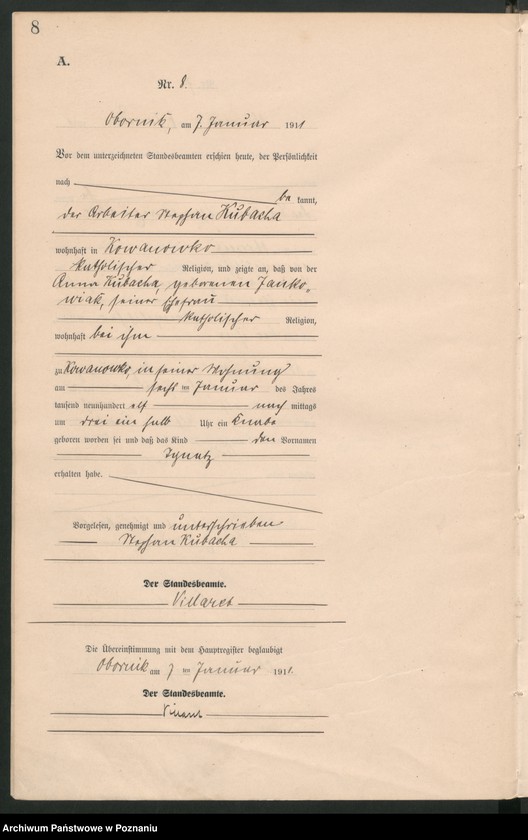 8
A.
Nr. 8.
Obornik, am 7. Januar 1911
Vor dem unterzeichneten Standesbeamten erschien heute, der Persönlichkeit
nach
be kannt,
der Arbeiter Stephan Kubacha
wohnhaft in Kowanowko
katholischer Religion, und zeigte an, daß von der
Anna Kubacha, geborenen Janko-
wiak, seiner Ehefrau
katholischer Religion,
wohnhaft bei ihm
zu Kowanowko, in seiner Wohnung
am sechs ten Januar des Jahres
tausend neunhundert elf nach mittags
um drei ein halb Uhr ein Knabe
geboren worden sei und daß das Kind den Vornamen
Ignatz
erhalten habe.
Vorgelesen, genehmigt und unterschrieben
Stephan Kubacha
Der Standesbeamte.
Villaret
Die Übereinstimmung mit dem Hauptregister beglaubigt
Obornik am 7 ten Januar 1911.
Der Standesbeamte.
Villaret
Archiwum Państwowe w Poznaniu